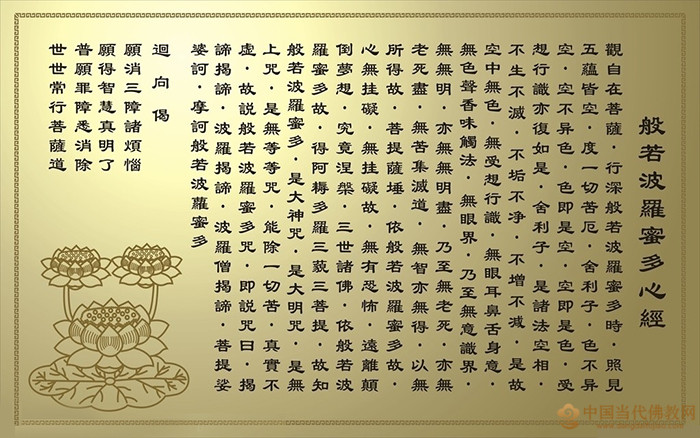 般若波羅蜜多心經
觀自在菩薩·行深般若波羅蜜多時·照見
五蘊皆空·度一切苦厄·舍利子·色不异
空·空不异色·色即是空·空即是色·受
想行識亦復如是·舍利子·是諸法空相·
不生不滅·不垢不净·不增不减·是故
空中無色·無受想行識·無眼耳鼻舌身意·
無色聲香味觸法·無眼界·乃至無意識界·
無無明·亦無無明盡·乃至無老死·亦無
老死盡·無苦集滅道·無智亦無得·以無
所得故·菩提薩埵·依般若波羅蜜多故·
心無挂礙·無挂礙故·無有恐怖·遠離顛
倒夢想·究竟涅槃·三世諸佛·依般若波
羅蜜多故·得阿耨多羅三藐三菩提·故知
般若波羅蜜多·是大神咒·是大明咒·是無
上咒·是無等等咒·能除一切苦·真實不
虛·故説般若波羅蜜多咒·即説咒曰·揭
諦揭諦·波羅揭諦·波羅僧揭諦·菩提娑
婆訶·摩訶般若波蘿蜜多
迴向偈
願消三障諸煩惱
願得智慧真明了
普願罪障悉消除
世世常行菩薩道
中国当代佛教网